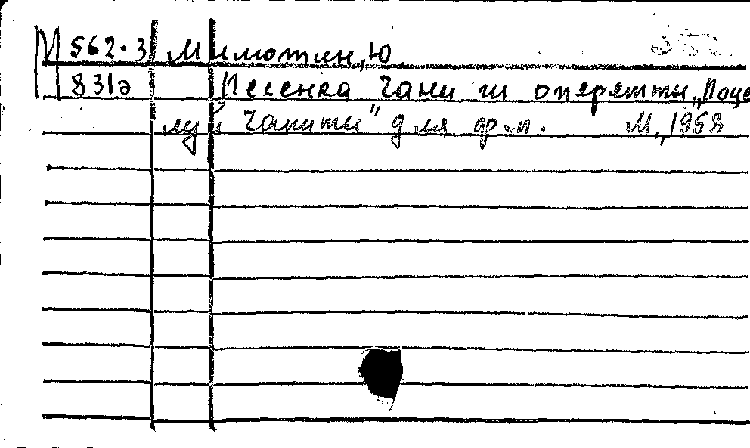 М 562-3 Милютин, Ю
831э Песенка Чани из оперетты „Поце-
луй Чаниты" для ф.-п. М., 1958